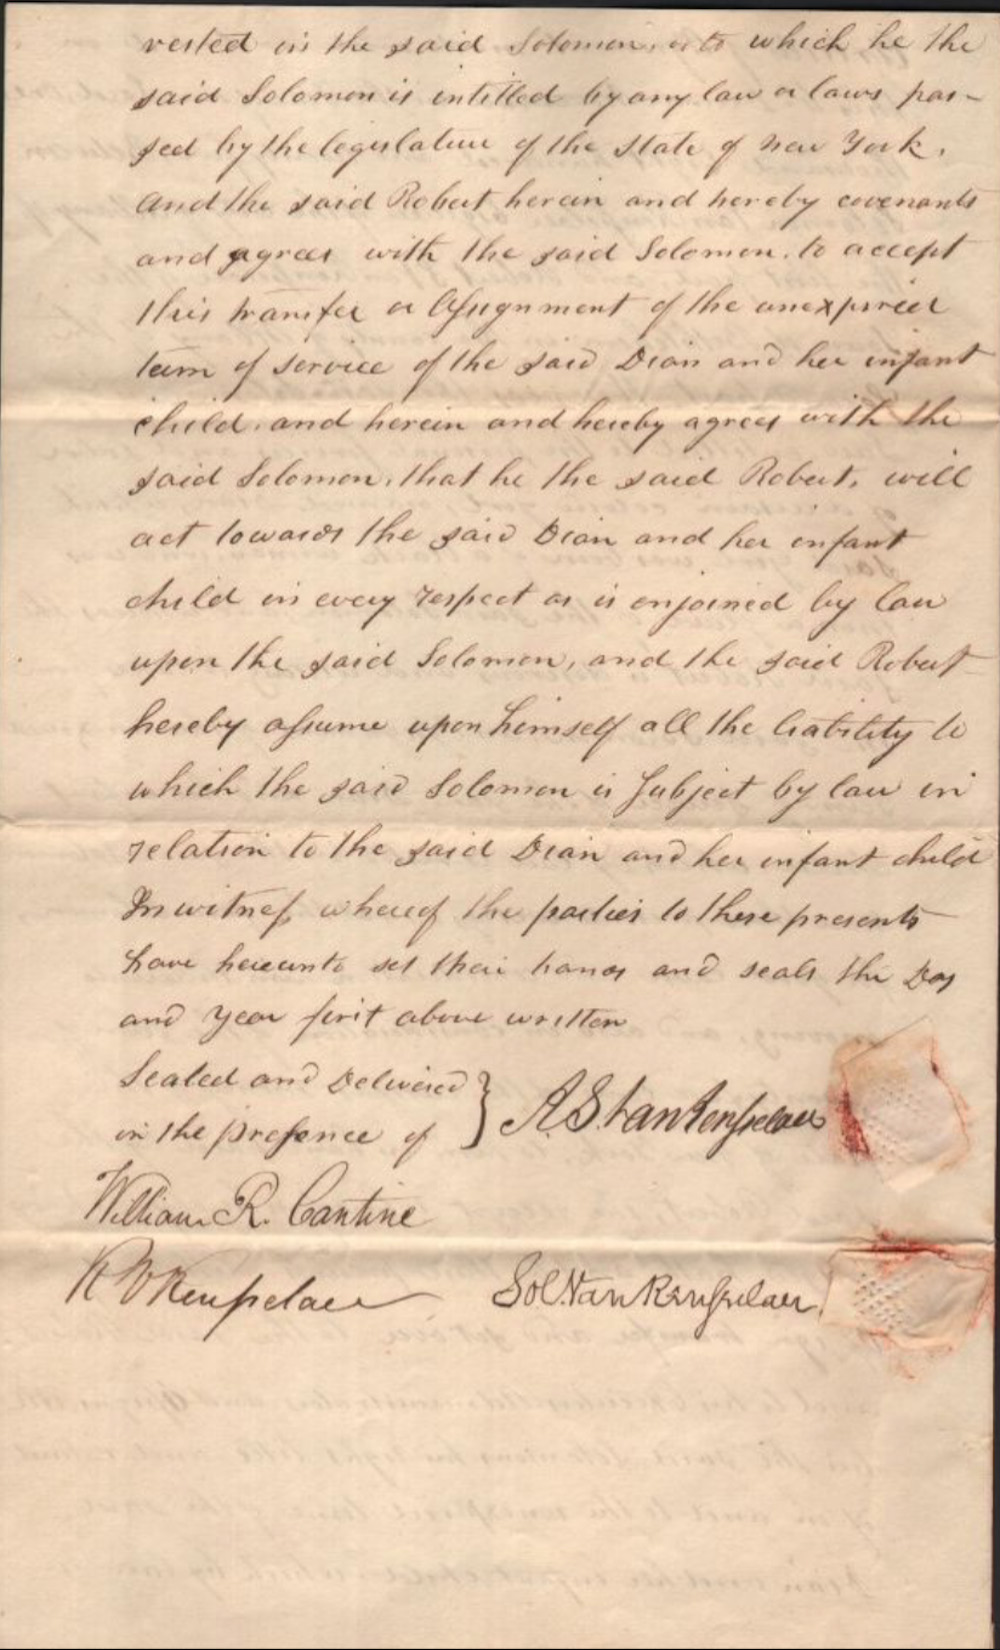 vested in the said Solomon, or to which he the
said Solomon is intitled by any law or laws pas-
sed by the legislature of the State of New York.
And the said Robert herein and hereby covenants
and agrees with the said Solomon, to accept
this transfer or Assignment of the unexpired
term of service of the said Dian and her infant
child, and herein and hereby agrees with the
said Solomon, that he the said Robert, will
act towards the said Dian and her infant
child in every respect as is enjoined by law
upon the said Solomon, and the said Robert
hereby assume upon himself all the liability to
which the said Solomon is Subject by law in
relation to the said Dian and her infant child
In witness whereof the parties to these presents
have hereunto set their hands and seals the Day
and Year first above written
Sealed and Delivered
in the presence of } R. S. Van Rensselaer
William R. Cantine
R V Rensselaer Sol. Van Rensselaer